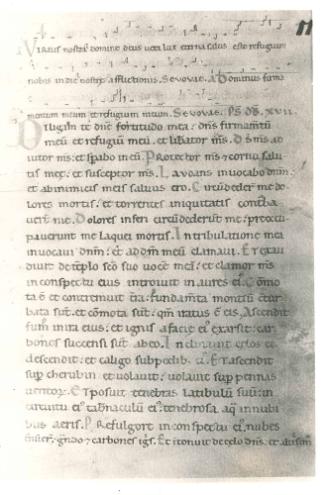 11
nobis in die nostre afflictionis. Sevovae. Dominus firma
mentum meum et refugium meum. Sevovae. Ps. Dd. XVII.
Diligam te dne fortitudo mea: dns firmamtu
meu et refugiu meu. et libator ms. D s ms ad
iutor ms: et spabo in eu. Protector ms: et cornu salu
tis mee: et susceptor ms. Lavdans invocabo dnm:
et ab inimicis meis salvus ero. Circudederunt me do
lores mortis: et torrentes iniquitatis conturba
verunt me. Dolores inferi circudederut me: preoccu
pauerunt me laquei mortis. In tribulatione mea
invocavi dnm: et ad dm meu clamavi. Et exau
divit de teplo sco suo voce mea: et clamor ms
in conspectu eius introivit in aures ei. Como
ta e et contremuit tra: fundamta montiu ctur
bata sut. et comota sut: qm iratus e eis. Ascendit
fum in ira eius: et ignis a facie ei exarsit: car
bones succensi sut ab eo. Inclinavit celos et
descendit: et caligo sub pedib ei. Et ascendit
sup cherubin et volavit: volavit sup pennas
ventoz. Et posuit tenebras latibulu suu: in
circuitu ei tabnaculu ei: tenebrosa aq in nubi
bus aeris. P refulgore in conspectu ei nubes